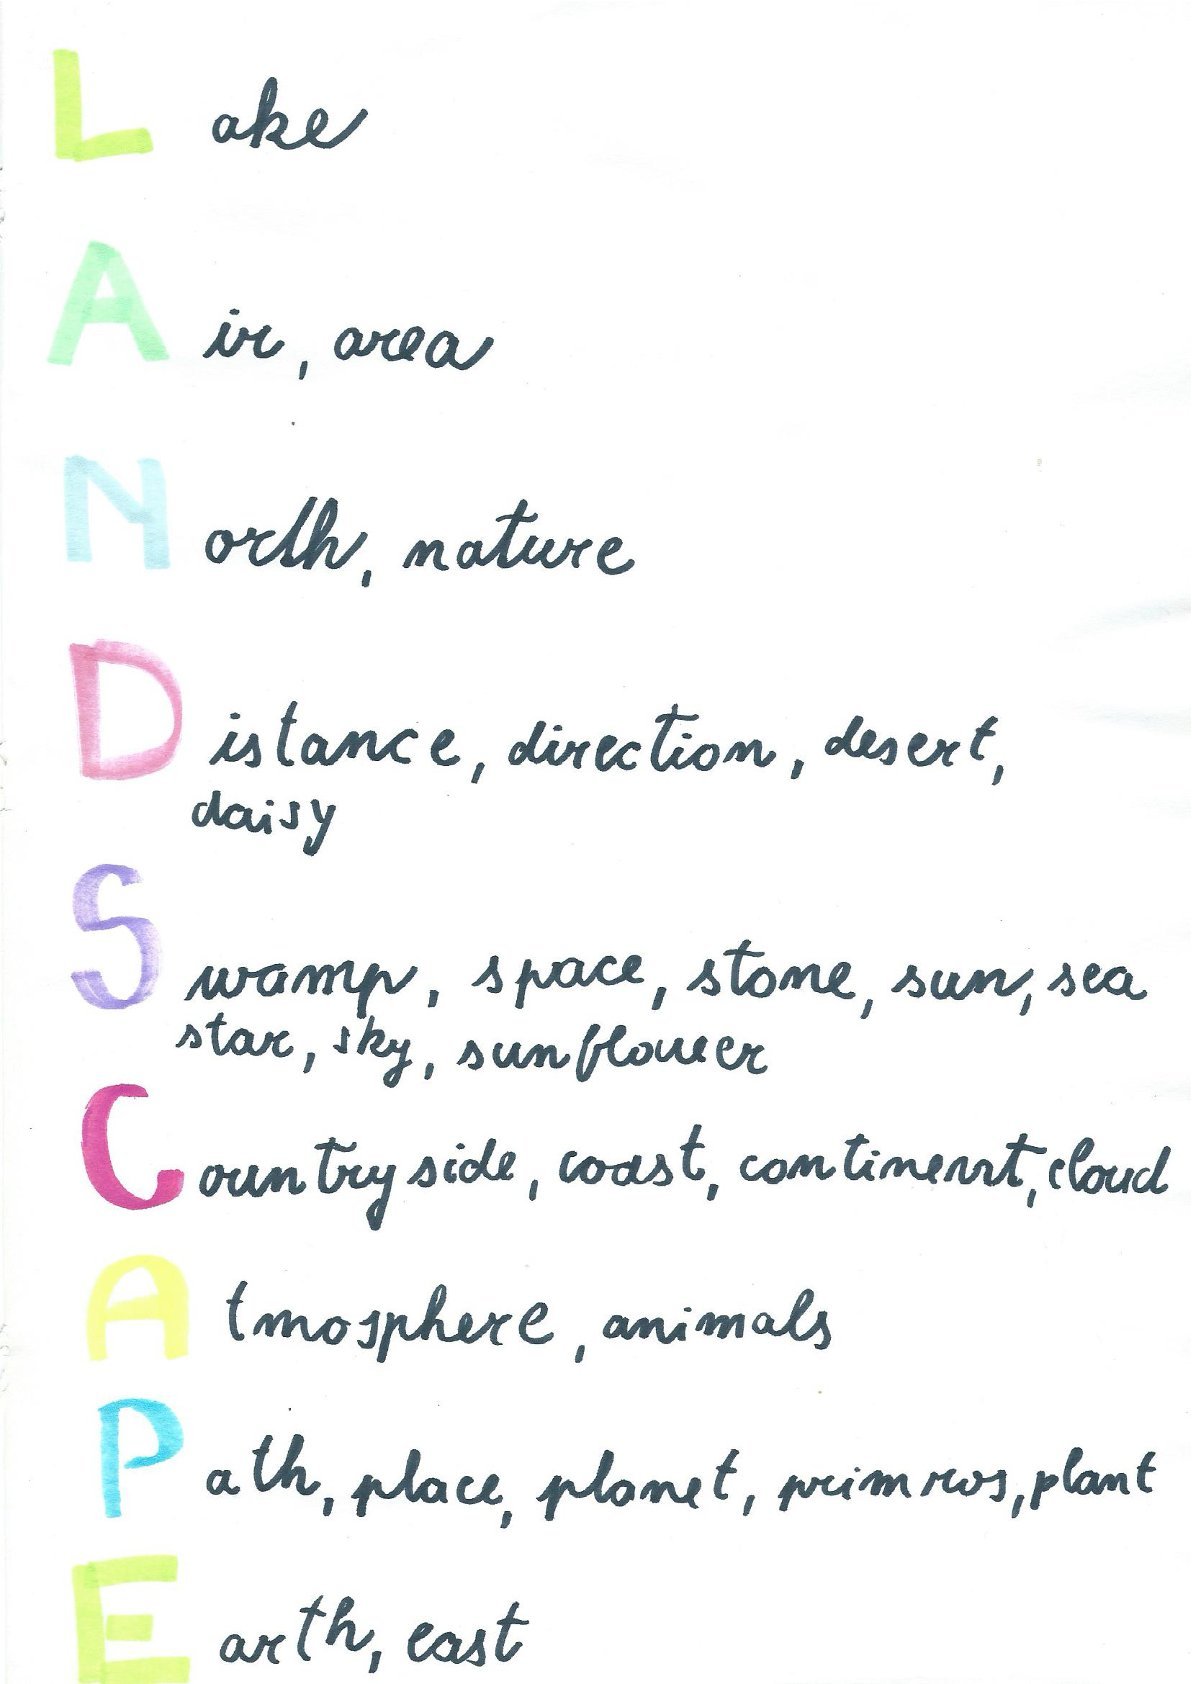 Lake
Air, area
North, nature
Distance, direction, desert,
daisy
Swamp, space, stone, sun, sea
star, sky, sunflower
Countryside, coast, continennt, cloud
Atmosphere, animals
Path, place, planet, primros, plant
Earth, east